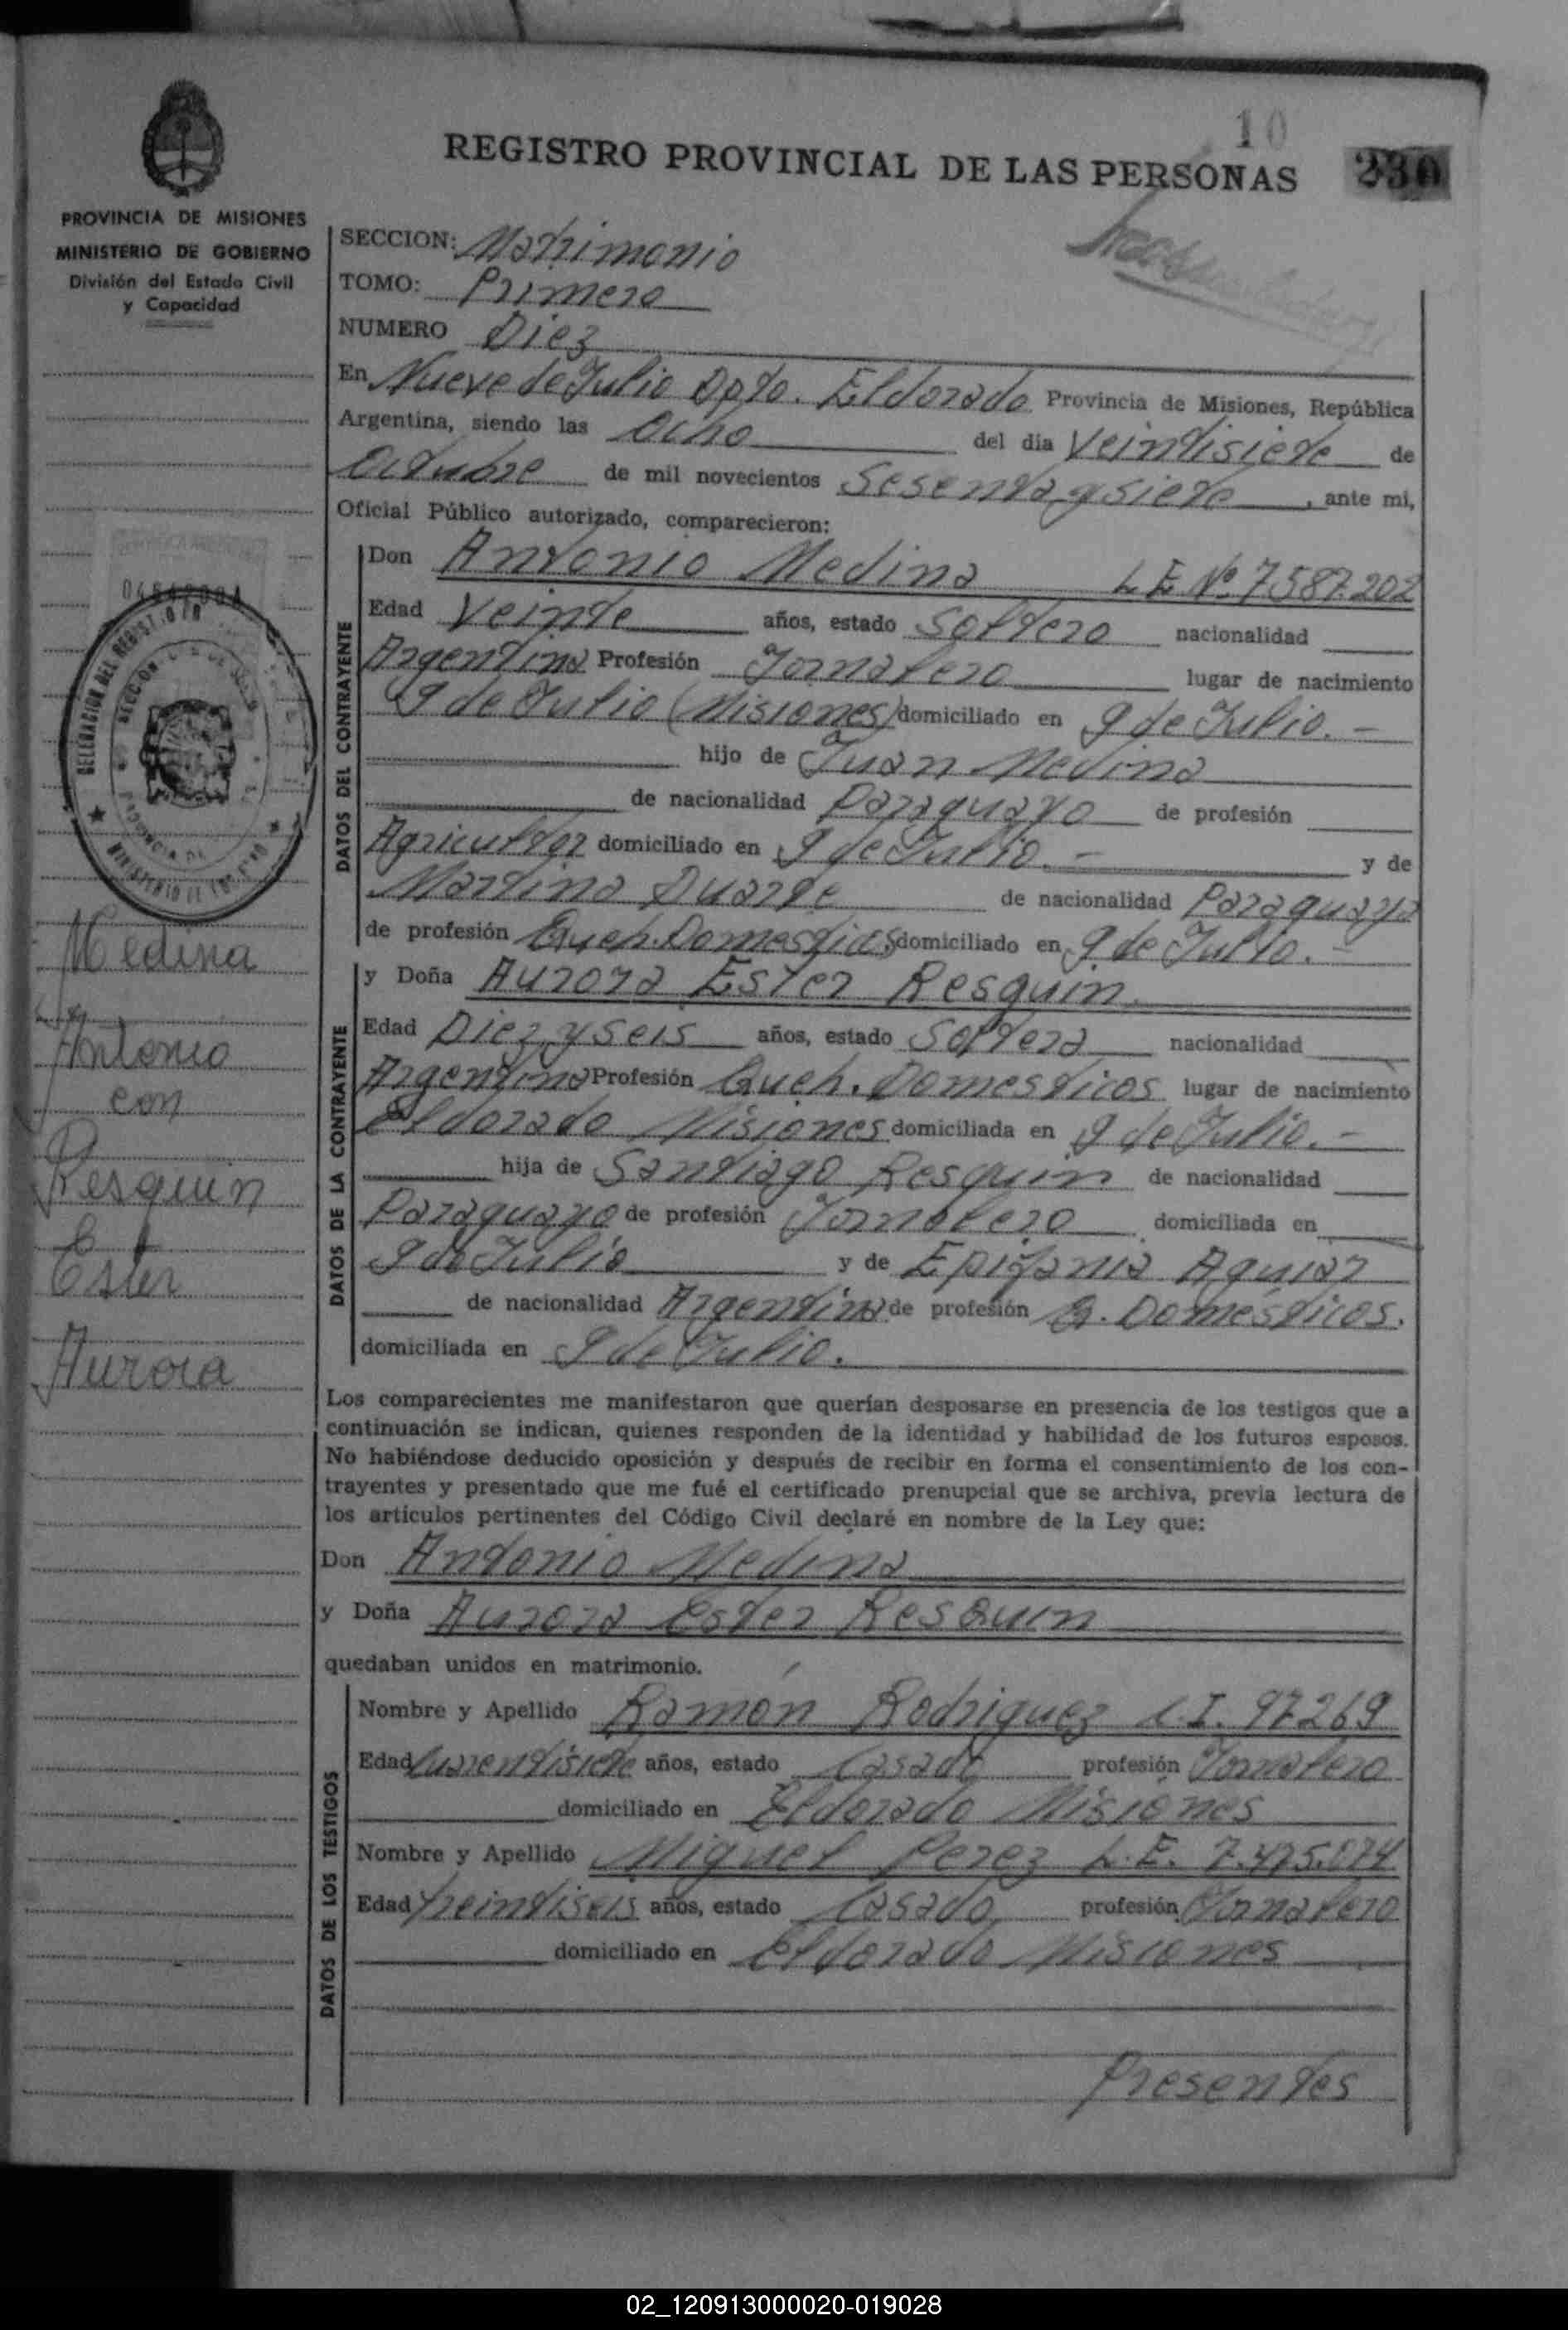 10
REGISTRO PROVINCIAL DE LAS PERSONAS 230
PROVINCIA DE MISIONES
MINISTERIO DE GOBIERNO
División del Estado Civil
y Capacidad
SECCION: Matrimonio
TOMO: Primero
NUMERO Diez
En Nueve de Julio Dpto. Eldorado Provincia de Misiones, República
Argentina, siendo las Ocho del día Veintisiete de
Octubre de mil novecientos Sesenta y siete, ante mi,
Oficial Público autorizado, comparecieron:
DATOS DEL CONTRAYENTE
Don Antonio Medina L E Nº 7587.202
Edad Veinte años, estado Soltero nacionalidad
Argentina Profesión Jornalero lugar de nacimiento
9 de Julio (Misiones) domiciliado en 9 de Julio. -
hijo de Juan Medina
de nacionalidad Paraguayo de profesión
Agricultor domiciliado en 9 de Julio. - y de
Martina Duarte de nacionalidad Paraguaya
de profesión Queh. Domesticos domiciliado en 9 de Julio. -
DATOS DE LA CONTRAYENTE
y Doña Aurora Ester Resquin
Edad Diez y seis años, estado Soltera nacionalidad
Argentina Profesión Queh. Domesticos lugar de nacimiento
Eldorado Misiones domiciliada en 9 de Julio. -
hija de Santiago Resquin de nacionalidad
Paraguayo de profesión Jornalero domiciliada en
9 de Julio y de Epifania Aguiar
de nacionalidad Argentina de profesión Q. Domésticos.
domiciliada en 9 de Julio.
Los comparecientes me manifestaron que querían desposarse en presencia de los testigos que a
continuación se indican, quienes responden de la identidad y habilidad de los futuros esposos.
No habiéndose deducido oposición y después de recibir en forma el consentimiento de los con-
trayentes y presentado que me fué el certificado prenupcial que se archiva, previa lectura de
los artículos pertinentes del Código Civil declaré en nombre de la Ley que:
Don Antonio Medina
y Doña Aurora Ester Resquin
quedaban unidos en matrimonio.
DATOS DE LOS TESTIGOS
Nombre y Apellido Ramón Rodriguez C.I. 97269
Edad Cuarentisiete años, estado Casado profesión Jornalero
domiciliado en Eldorado Misiones
Nombre y Apellido Miguel Perez L.E. 7.475.074
Edad treintiseis años, estado Casado profesión Jornalero
domiciliado en Eldorado Misiones
Presentes
DELEGACION DEL REGISTRO
SECCION
MINISTERIO DE GOBIERNO
Medina
Antonio
con
Resquin
Ester
Aurora
02_120913000020-019028